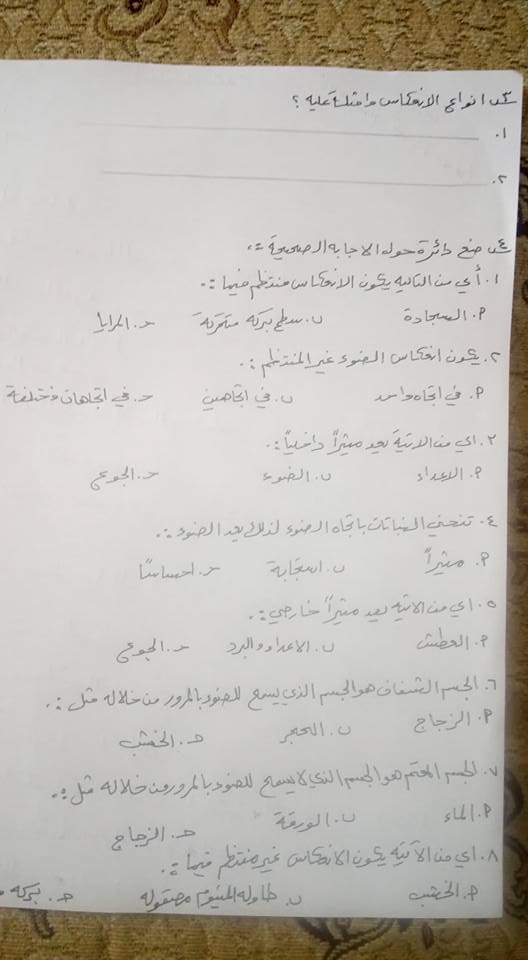 س٣ انواع الانعكاس وامثلة عليه ؟
١.
٢.
س٤ ضع دائرة حول الاجابه الصحيحة :.
١. أي من التاليه يكون الانعكاس منتظم فيها :.
P. السجادة ب. سطح بركه متحركة حـ. المرايا
٢. يكون انعكاس الضوء غير المنتظم :.
P. في اتجاه واحد ب. في اتجاهين حـ. في اتجاهات مختلفة
٣. اي من الاتية يعد مثيراً داخلياً :.
P. الاعداء ب. الضوء حـ. الجوع
٤. تنحني النباتات باتجاه الضوء لذلك يعد الضوء :.
P. مثيراً ب. استجابة حـ. احساسًا
٥. اي من الاتيه يعد مثيراً خارجي :.
P. العطش ب. الاعداء والبرد حـ. الجوع
٦. الجسم الشفاف هو الجسم الذي يسمح للضوء بالمرور من خلاله مثل :.
P. الزجاج ب. الحجر حـ. الخشب
٧. الجسم المعتم هو الجسم الذي لا يسمح للضوء بالمرور من خلاله مثل :.
P. الماء ب. الورقة حـ. الزجاج
٨. اي من الآتيه يكون الانعكاس غير منتظم فيها :.
P. الخشب ب. طاوله المنيوم مصقوله حـ. بركه